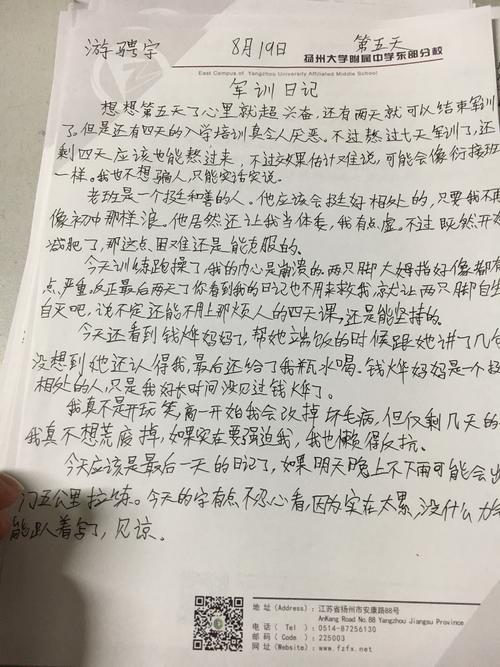 游骋宇 8月19日 第五天
扬州大学附属中学东部分校
East Campus of Yangzhou University Affiliated Middle School
军训日记
想想第五天了心里就超兴奋，还有两天就可以结束军训
了。但是还有四天的入学培训真令人厌恶。不过熬过七天军训了，还
剩四天应该也能熬过来，不过效果估计难说，可能会像衔接班
一样。我也不想骗人，只能实话实说。
老班是一个挺和善的人。他应该会挺好相处的，只要我不再
像初中那样浪。他居然还让我当体委，我有点虚。不过既然开始
减肥了，那这点困难还是能克服的。
今天训练跑操了，我的内心是崩溃的，两只脚大姆指好像都有
点严重。反正最后两天了你看到我的日记也不用来救我，就让两只脚自生
自灭吧，说不定还能不用上那烦人的四天课，还是能坚持的。
今天还看到钱烨妈妈了，帮她端饭的时候跟她讲了几句
没想到她还认得我，最后还给了我瓶水喝。钱烨妈妈是个超
相处的人，只是我好长时间没见过钱烨了。
我真不是开玩笑，高一开始我会改掉坏毛病，但仅剩几天的
我真不想荒废掉，如果实在要强迫我，我也懒得反抗。
今天应该是最后一天的日记了，如果明天晚上不下雨可能会出
门五公里拉练。今天的字有点不忍心看，因为实在太累，没什么力
能趴着写了，见谅。
地 址（Address）：江苏省扬州市安康路88号
AnKang Road No.88 Yangzhou Jiangsu Province
电 话（ Tel ）：0514-87256130
邮 码（ Code ）：225003
网 址：www.fzfx.net